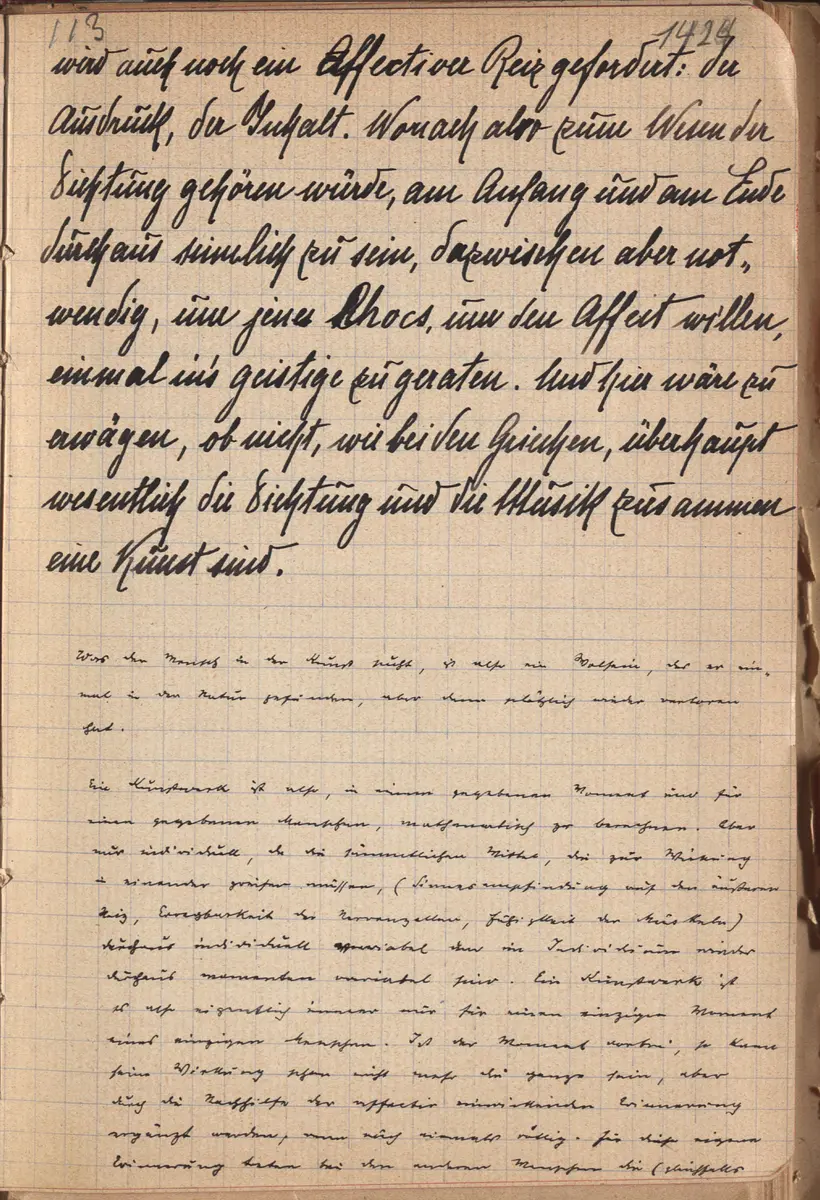 113
1424
wird auch noch ein Affectiver Reiz gefordert: der
Ausdruck, der Inhalt. Wonach also zum Wesen der
Dichtung gehören würde, am Anfang und am Ende
durchaus sinnlich zu sein, dazwischen aber not„
wendig, um jenes Chocs, um den Affect willen,
einmal in's geistige zu geraten. Und hier wäre zu
erwägen, ob nicht, wie bei den Griechen, überhaupt
wesentlich die Dichtung und die Musik zusammen
eine Kunst sind.
Was der Mensch in der Kunst sucht, ist also ein Wolsein, das er ein„
mal in der Natur gefunden, aber dann plötzlich wieder verloren
hat.
Ein Kunstwerk ist also, in einem gegebenen Moment und für
einen gegebenen Menschen, mathematisch zu berechnen. Aber
nur individuell, da die sämmtlichen Mittel, die zur Wirkung
in einander greifen müssen, (Sinnesempfindung auf den äußeren
Reiz, Erregbarkeit der Nervenzellen, Fähigkeit der Muskeln)
durchaus individuell variabel und im Individuum wieder
durchaus momentan variabel sind. Ein Kunstwerk ist
es also eigentlich immer nur für einen einzigen Moment
eines einzigen Menschen. Ist der Moment vorbei, so kann
seine Wirkung schon nicht mehr die ganze sein, aber
durch die Nachhilfe der affectiv einwirkenden Erinnerung
ergänzt werden, wenn auch niemals völlig. Für diese eigene
Erinnerung treten bei den anderen Menschen die (gleichfalls